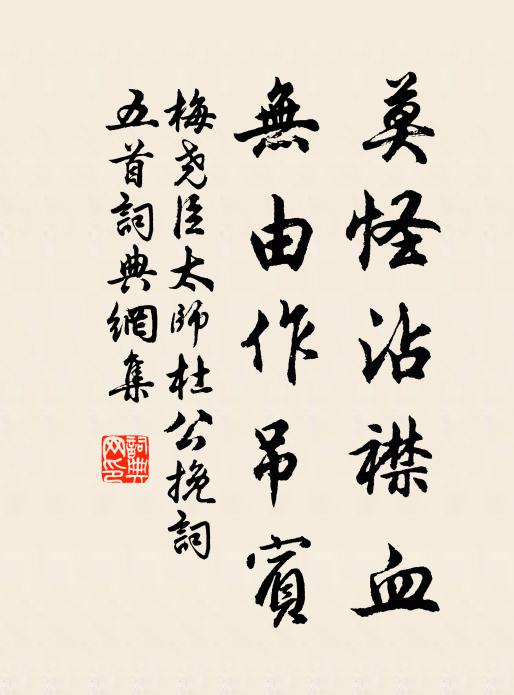 莫怪沾襟血
無由作吊賓
梅尧臣太師杜公挽詞
五首詞典網集
詞典網印